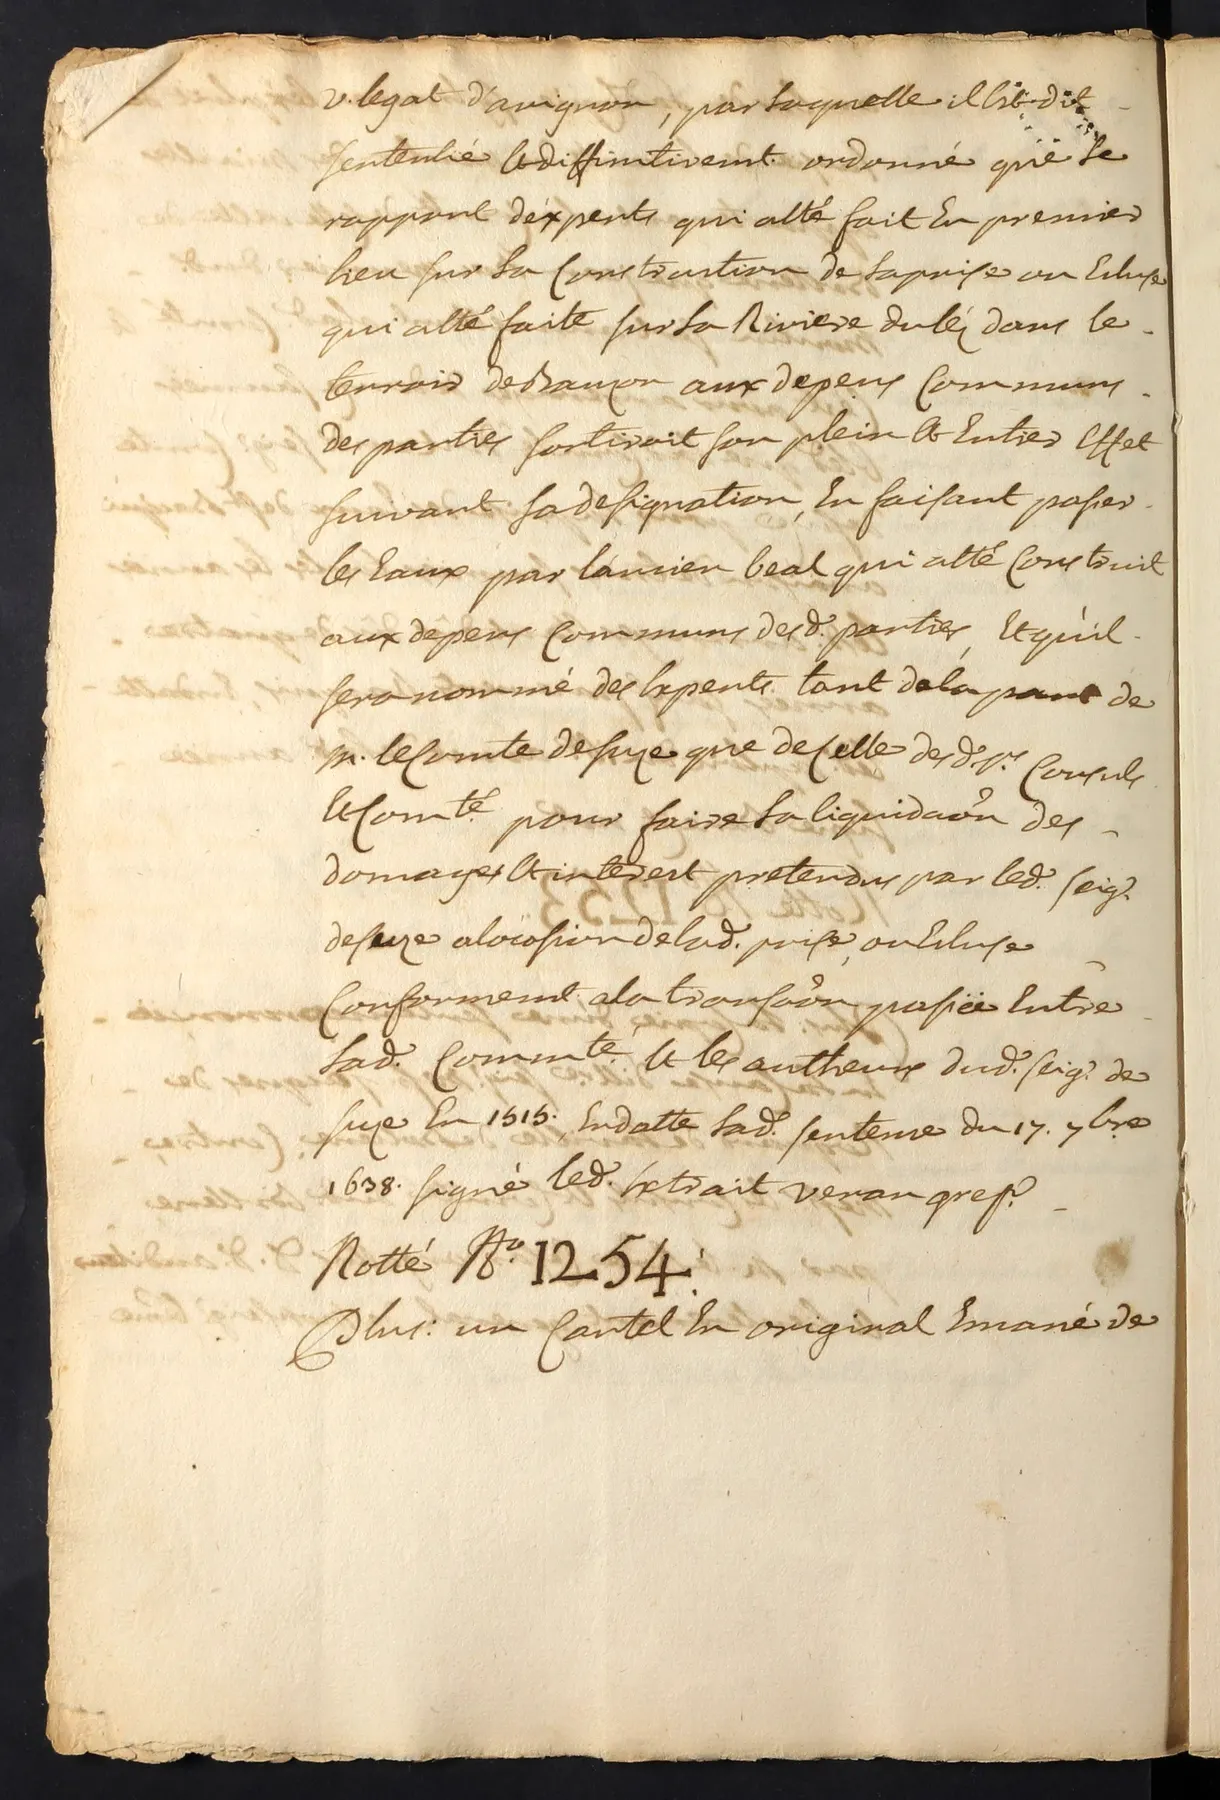 v. legat d'avignon, par laquelle il est dit
sentensié et diffinitivemt. ordonné que le
rapport d'expents qui a esté fait En premier
lieu sur la Construction de la prise ou Ecluse
qui a esté faite sur la Riviere du léz dans le
terroir de Bauzon aux depens Communs
des parties sortiroit son plein et Entier Effet
suivant sa designation, En faisant passer
les Eaux par l'ancien beal qui a esté Construit
aux depens Communs desd. parties, Et qu'il
sera nommé des Expents tant de la part de
m. le Comte de suze que de Celle desd. srs. Consuls
Et Comté. pour faire la liquidaôn des
domages et interest pretendus par led. seigr.
de suze a l'ocasion de lad. prise, ou Ecluse
Conformemt. a la transaôn passée Entre
lad. Commté. et les autheurs dud. seigr. de
suze En 1515. En datte lad. sentense du 17. 7bre
1638. signé led. Extrait veran grefr.
Notté No. 1254.
Plus: un Cartel En original Emané de